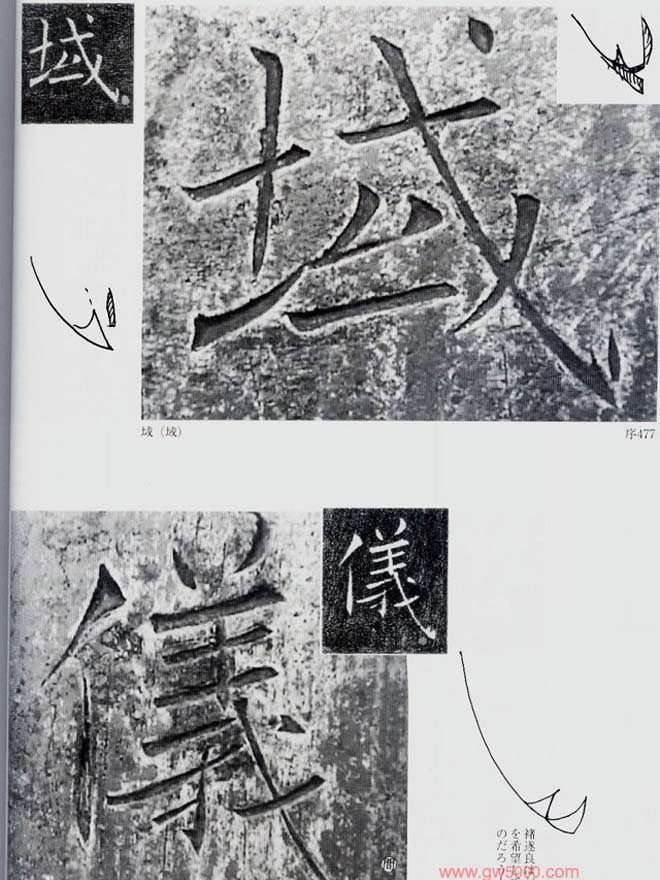 域
域
域（域）
序477
儀
儀
褚遂良は
を希望
のだろう
www.gw5000.com